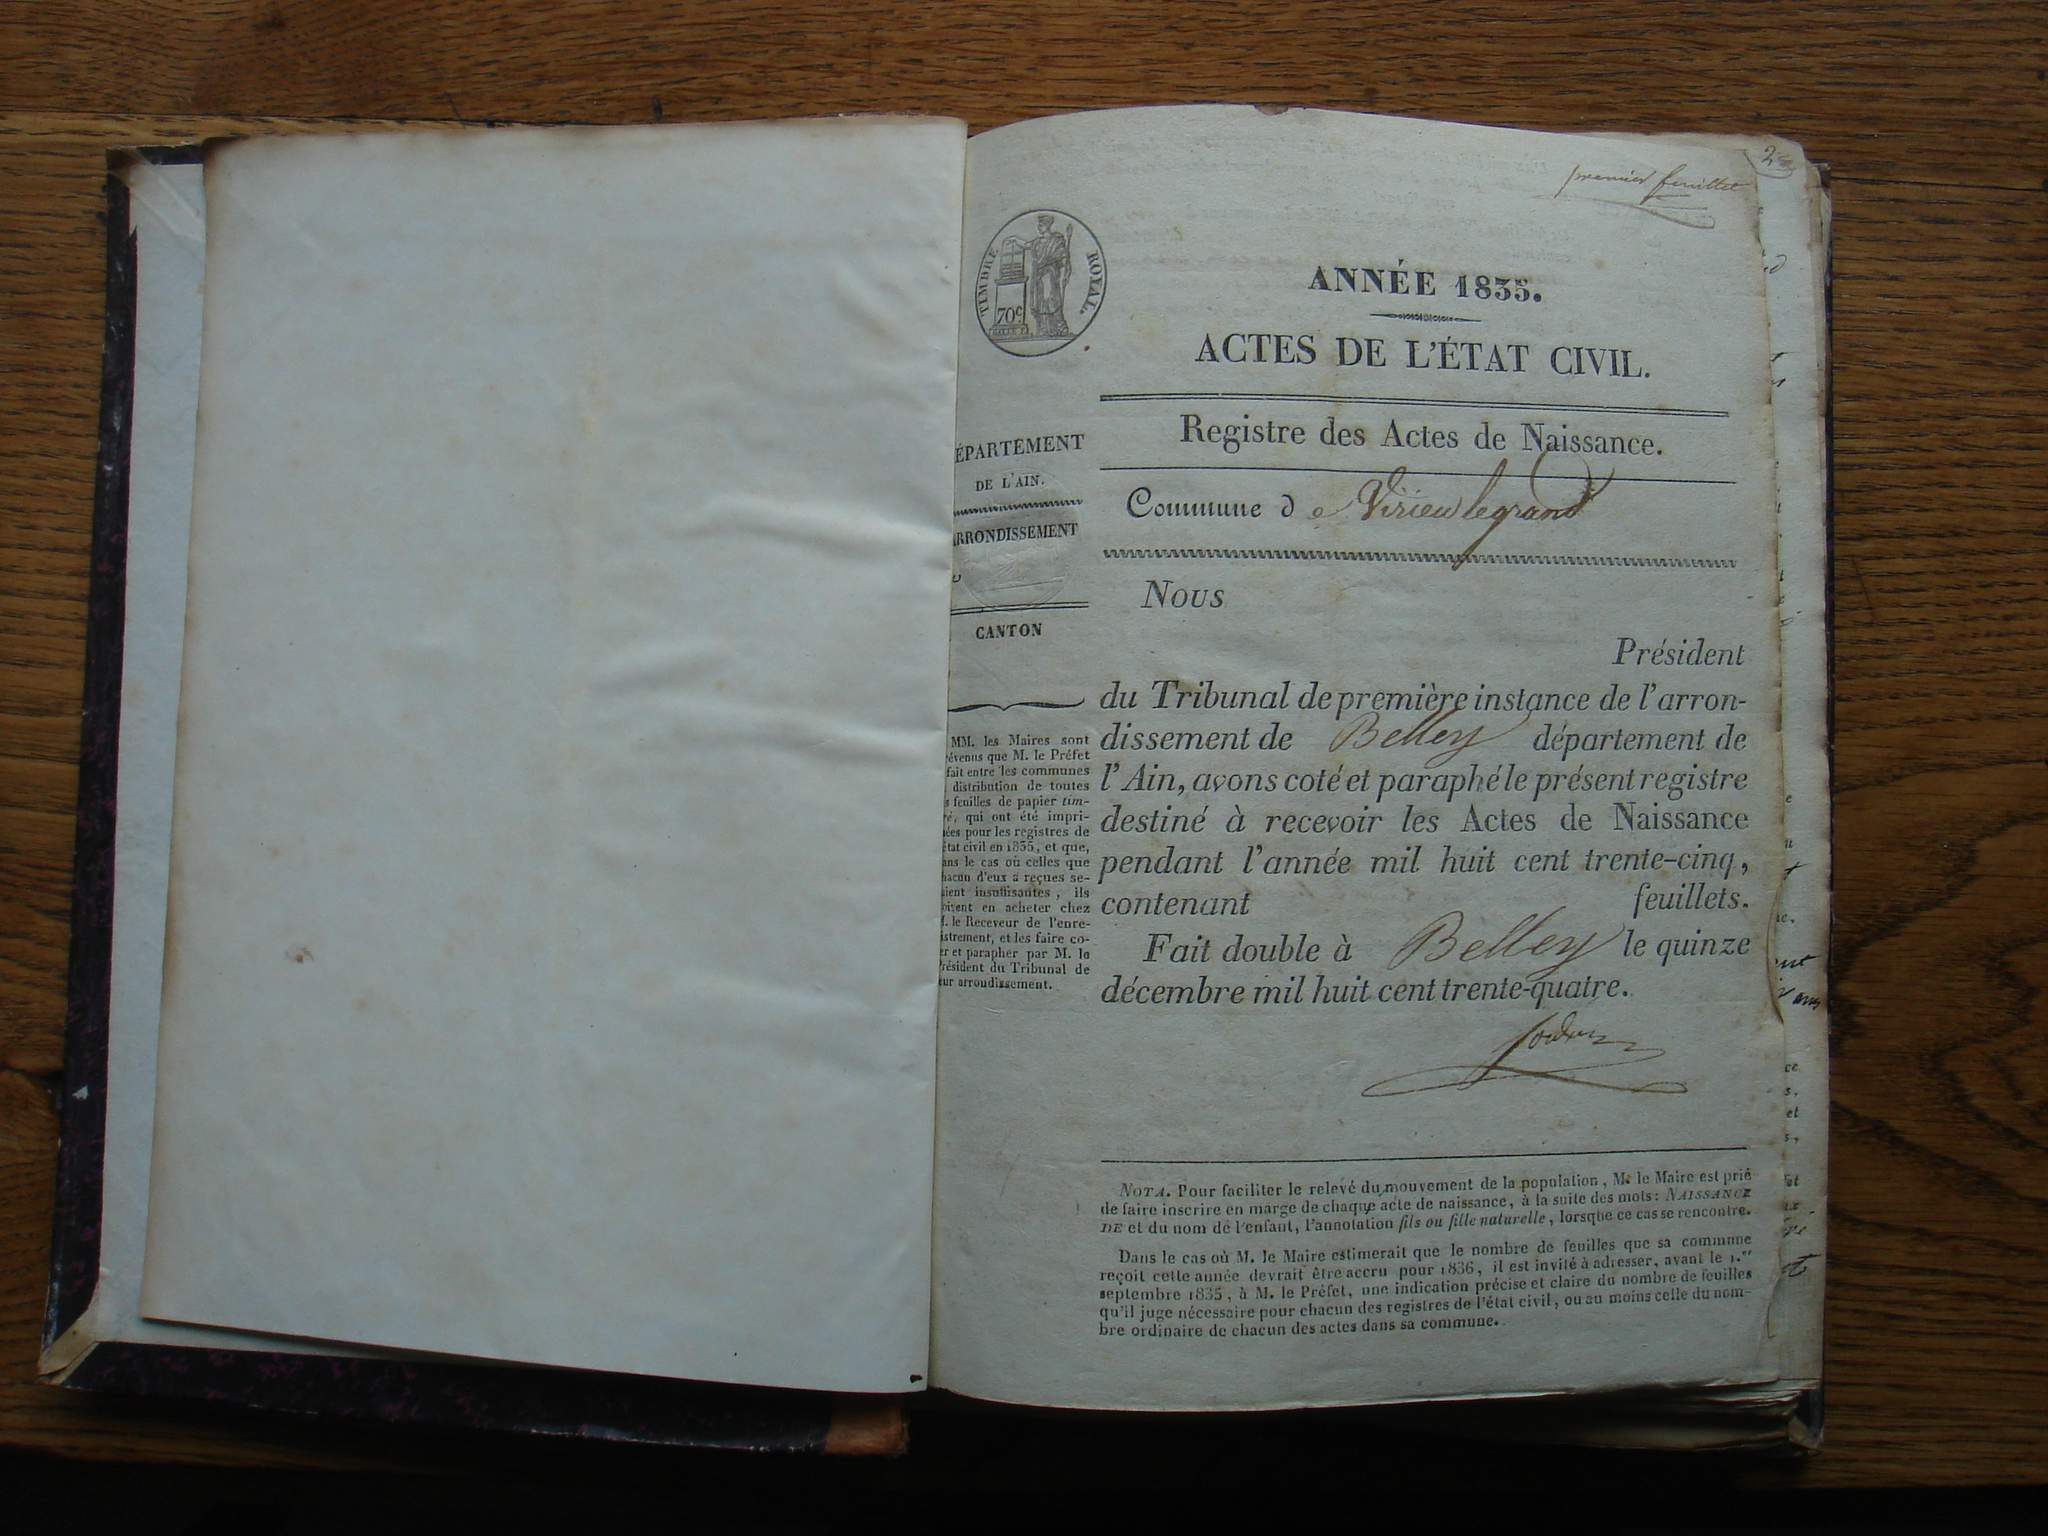 premier feuillet
2
TIMBRE ROYAL.
70c
ANNÉE 1835.
ACTES DE L'ÉTAT CIVIL.
Registre des Actes de Naissance.
Commune de Virieu legrand
ÉPARTEMENT
DE L'AIN.
ARRONDISSEMENT
CANTON
MM. les Maires sont
révenus que M. le Préfet
fait entre les communes
distribution de toutes
s feuilles de papier tim-
ré, qui ont été impri-
ées pour les registres de
état civil en 1835, et que,
ans le cas où celles que
hacun d'eux a reçues se-
aient insuffisantes, ils
oivent en acheter chez
M. le Receveur de l'enre-
istrement, et les faire co-
er et parapher par M. le
Président du Tribunal de
eur arroudissement.
Nous
Président
du Tribunal de première instance de l'arron-
dissement de Belley département de
l'Ain, avons coté et paraphé le présent registre
destiné à recevoir les Actes de Naissance
pendant l'année mil huit cent trente-cinq,
contenant feuillets.
Fait double à Belley le quinze
décembre mil huit cent trente-quatre.
NOTA. Pour faciliter le relevé du mouvement de la population, M. le Maire est prié
de faire inscrire en marge de chaque acte de naissance, à la suite des mots: NAISSANCE
DE et du nom de l'enfant, l'annotation fils ou fille naturelle, lorsque ce cas se rencontre.
Dans le cas où M. le Maire estimerait que le nombre de feuilles que sa commune
reçoit cette année devrait être accru pour 1836, il est invité à adresser, avant le 1.er
septembre 1835, à M. le Préfet, une indication précise et claire du nombre de feuilles
qu'il juge nécessaire pour chacun des registres de l'état civil, ou au moins celle du nom-
bre ordinaire de chacun des actes dans sa commune.